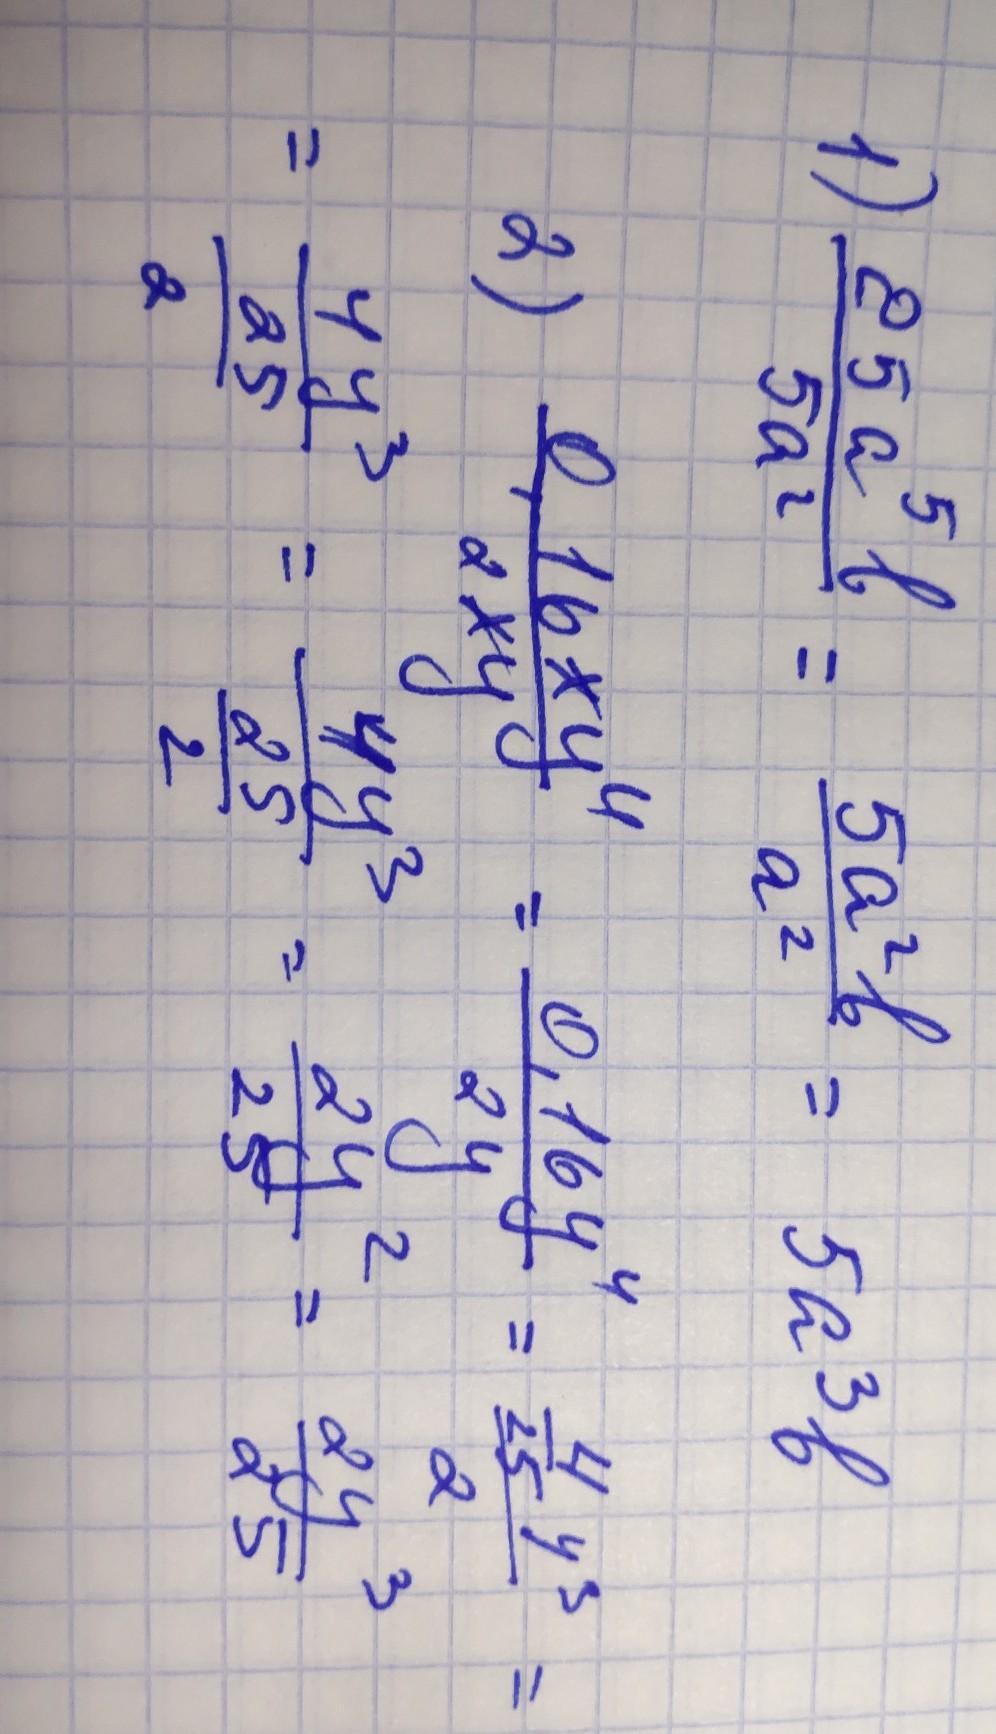 1) 25a⁵b/5a² = 5a²b/a² = 5a³b
2) 0,16xy⁴/2xy = 0,16y⁴/2y = (4/25 y³)/2 =
= (4y³/25)/2 = (4y³/25)/2 = 2y²/25 = 2y³/25